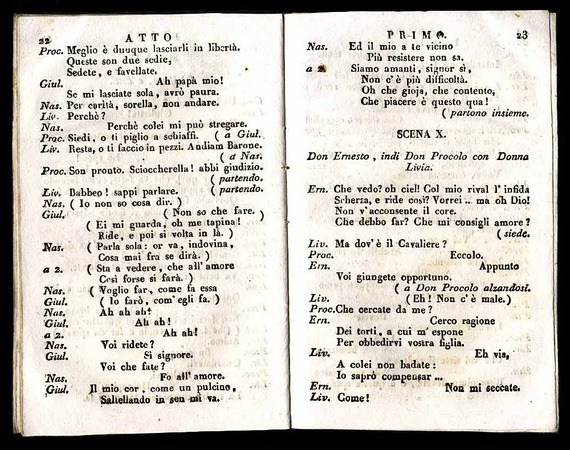 22 ATTO
Proc. Meglio è dunque lasciarli in libertà.
Queste son due sedie,
Sedete, e favellate.
Giul. Ah papà mio!
Se mi lasciate sola, avrò paura.
Nas. Per carità, sorella, non andare.
Liv. Perchè?
Nas. Perchè colei mi può stregare.
Proc. Siedi, o ti piglio a schiaffi. ( a Giul.
Liv. Resta, o ti faccio in pezzi. Andiam Barone.
( a Nas.
Proc. Son pronto. Scioccherella! abbi giudizio.
( partendo.
Liv. Babbeo! sappi parlare. ( partendo.
Nas. ( Io non so cosa dir. )
Giul. ( Non so che fare. )
( Ei mi guarda, oh me tapina!
Ride, e poi si volta in là. )
Nas. ( Parla sola: or va, indovina,
Cosa mai fra se dirà. )
a 2. ( Sta a vedere, che all' amore
Così forse si farà. )
Nas. ( Voglio far, come fa essa
Giul. ( Io farò, com' egli fa. )
Nas. Ah ah ah!
Giul. Ah ah!
a 2. Ah ah!
Nas. Voi ridete?
Giul. Si signore.
Voi che fate?
Nas. Fo all' amore.
Giul. Il mio cor, come un pulcino,
Saltellando in sen mi va.
PRIMO. 23
Nas. Ed il mio a te vicino
Più resistere non sa.
a 2. Siamo amanti, signor sì,
Non c'è più difficoltà.
Oh che gioja, che contento,
Che piacere è questo qua!
( partono insieme.
SCENA X.
Don Ernesto, indi Don Procolo con Donna
Livia.
Ern. Che vedo? oh ciel! Col mio rival l' infida
Scherza, e ride così? Vorrei .. ma oh Dio!
Non v'acconsente il core.
Che debbo far? Che mi consigli amore?
( siede.
Liv. Ma dov' è il Cavaliere?
Proc. Eccolo.
Ern. Appunto
Voi giungete opportuno.
( a Don Procolo alzandosi.
Liv. ( Eh! Non c'è male.)
Proc. Che cercate da me?
Ern. Cerco ragione
Dei torti, a cui m' espone
Per obbedirvi vostra figlia.
Liv. Eh via,
A colei non badate:
Io saprò compensar ...
Ern. Non mi seccate.
Liv. Come!